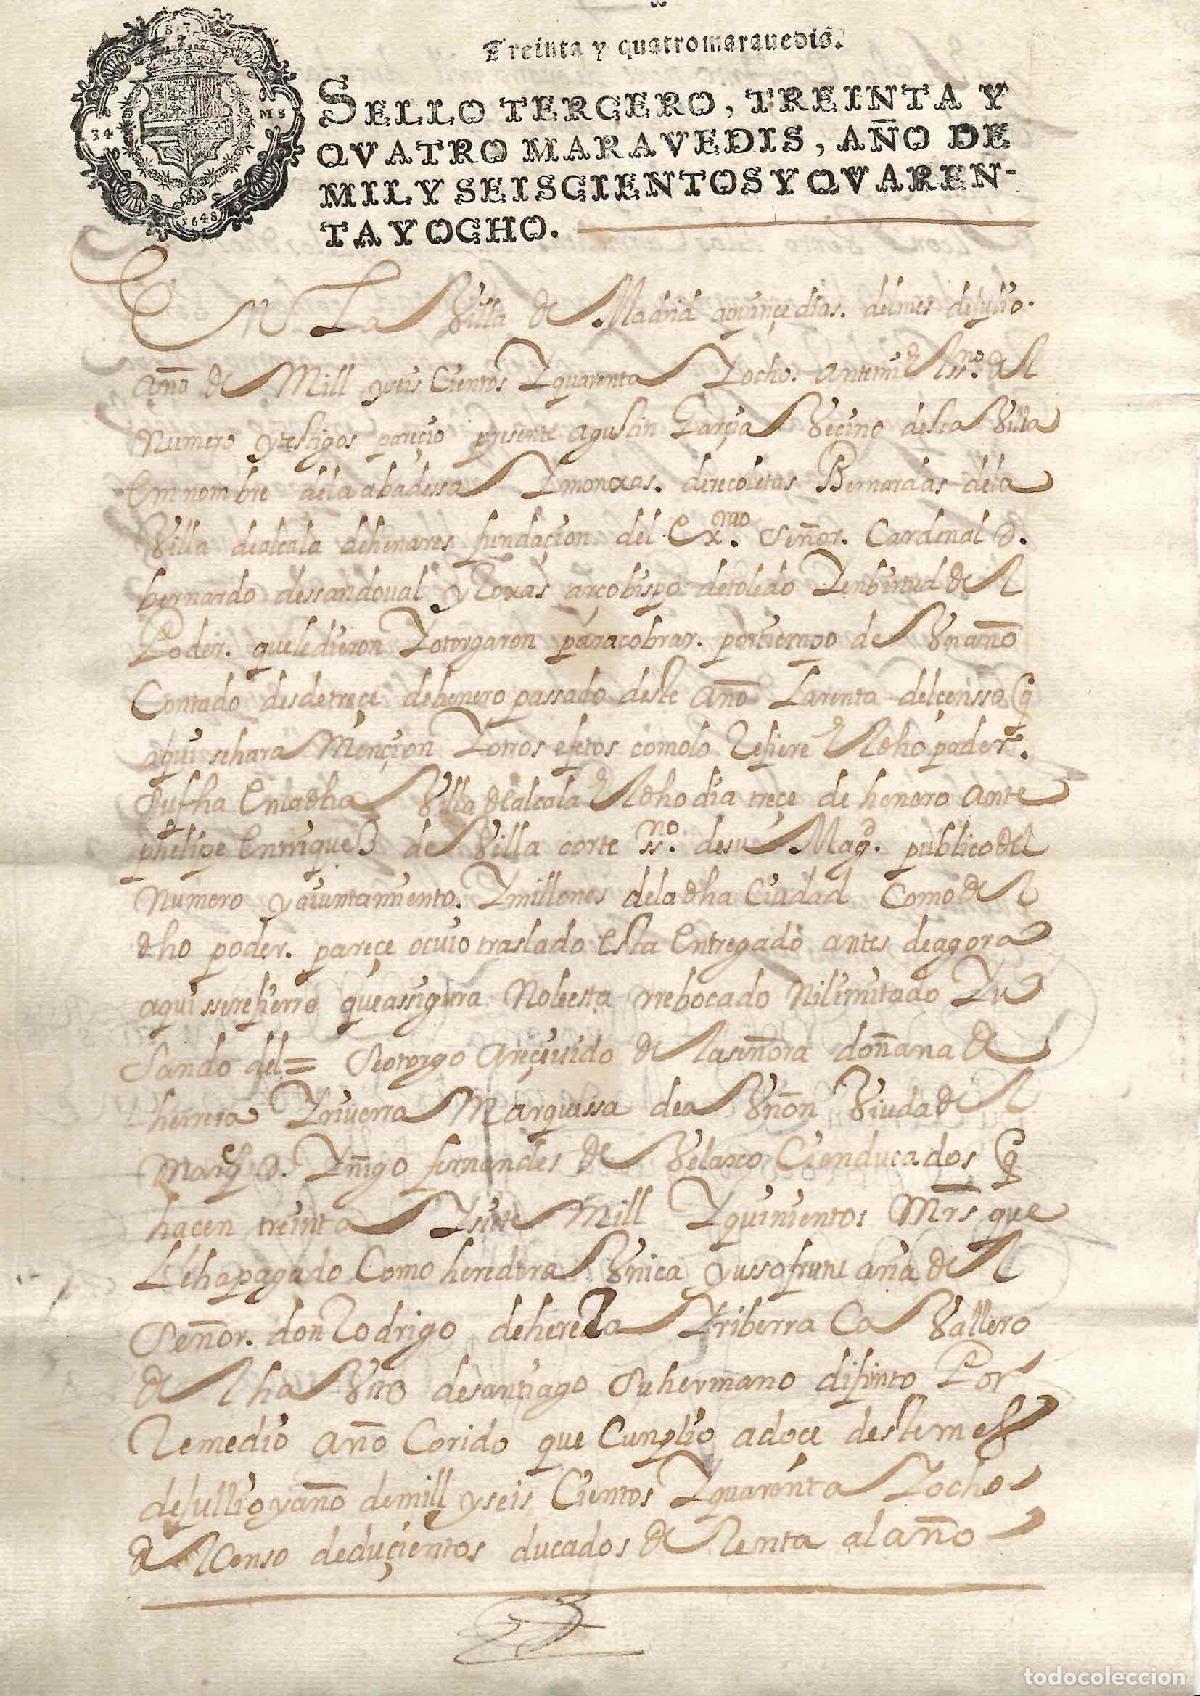 Treinta y quatro maravedis.
SELLO TERCERO, TREINTA Y
QVATRO MARAVEDIS, AÑO DE
MIL Y SEISCIENTOS Y QVAREN-
TA Y OCHO.
34 MS
1648
En La Villa de Madrid a quinçe dias. del mes de Julio.
año de Mill y seis Cientos Y quarenta Y ocho. ante mi el ssno. del
Numero y testigos pareçio presente Agustin Garçia Veçino desta Villa
em nombre de la abadessa Y monxas. de recoletas Bernardas de la
Villa de alcala de henares fundaçion del Exmo. Señor. Cardenal D.
bernardo de ssandoval y Roxas arcobispo de toledo Y en birtud del
Poder. que le dieron Y otorgaron para cobrar. por tiempo de Vn año
Contado desde treçe de henero passado deste año La renta del censso q
aqui se hara Mençion Y otros efetos como lo Refiere el dho poder.
Su fha en la dha Villa de alcala el dho dia treçe de henero ante
phelipe Enrriquez de Villa corte ssno. de su Magd. publico del
Numero y aiuntamiento. Y millones de la dha Ciudad Como del
dho poder. pareçe cuio traslado esta entregado antes de agora
aqui sse refierre que assigura No le esta rrebocado Ni limitado Y u
Sando del = Se otorgo a Reçiuido de la señora doña ana de
herrera Y riuerra Marquessa de Auñon Viuda del
Marqs D. Yñigo fernandes de Velasco Cien ducados q
hacen treinta Y siete Mill Y quinientos Mrs que
Le ha pagado Como heredera Vnica y ussofrutuaria del
Señor. don Rodrigo de hereRa Y riberra CaVallero
del habito de santiago Su hermano difunto Por
Remedio año Corido que Cumplio a doce deste mes
de Jullio y año de mill y seis Cientos Y quarenta Y ocho
del Censo de duçientos ducados de Renta al año
todocoleccion